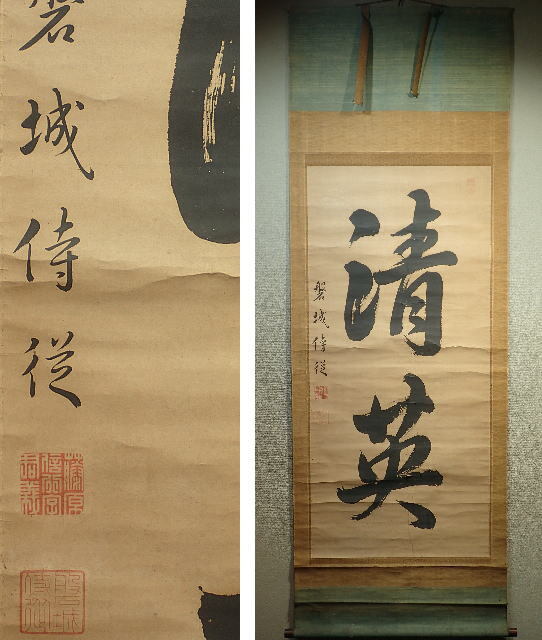 磐城侍従
清英
磐城侍従